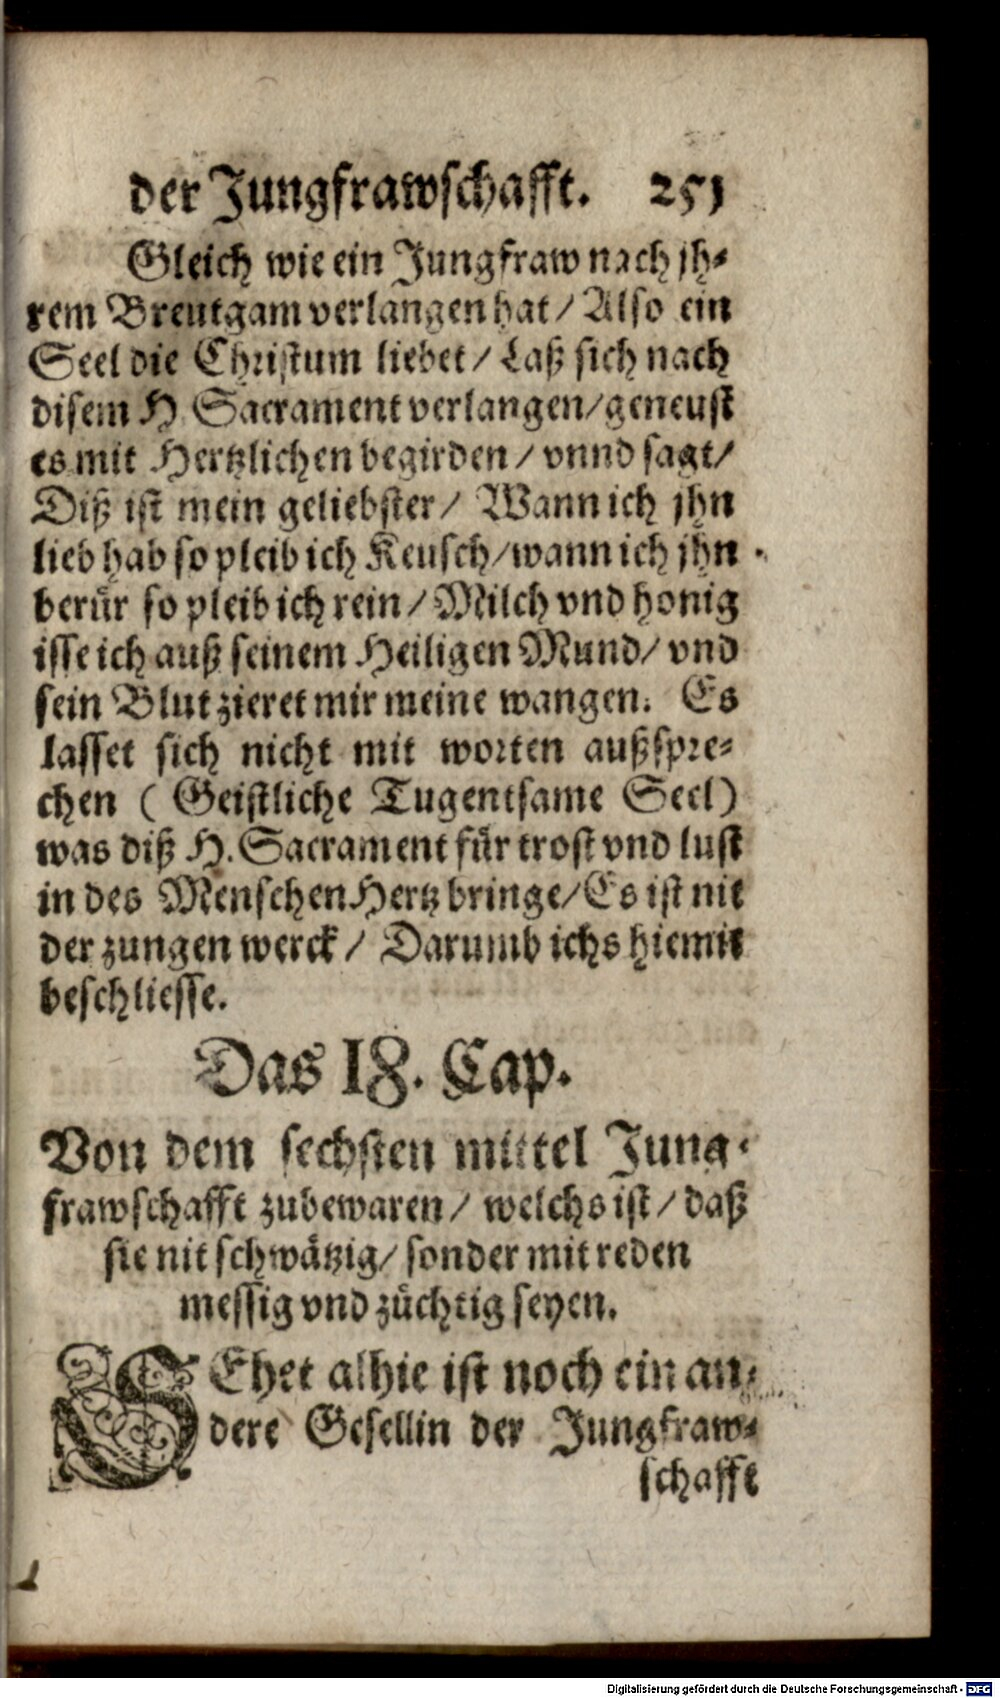 der Jungfrawschafft. 251
Gleich wie ein Jungfraw nach jh-
rem Breutgam verlangen hat / Also ein
Seel die Christum liebet / Laß sich nach
disem H. Sacrament verlangen / geneust
es mit Hertzlichen begirden / vnnd sagt /
Diß ist mein geliebster / Wann ich jhn
lieb hab so pleib ich Keusch / wann ich jhn
berür so pleib ich rein / Milch vnd honig
isse ich auß seinem Heiligen Mund / vnd
sein Blut zieret mir meine wangen. Es
lasset sich nicht mit worten außspre-
chen ( Geistliche Tugentsame Seel)
was diß H. Sacrament für trost vnd lust
in des Menschen Hertz bringe / Es ist nit
der zungen werck / Darumb ichs hiemit
beschliesse.
Das 18. Cap.
Von dem sechsten mittel Jung-
frawschafft zubewaren / welchs ist / daß
sie nit schwätzig / sonder mit reden
messig vnd züchtig seyen.
SEhet alhie ist noch ein an-
dere Gesellin der Jungfraw-
schafft
Digitalisierung gefördert durch die Deutsche Forschungsgemeinschaft - DFG